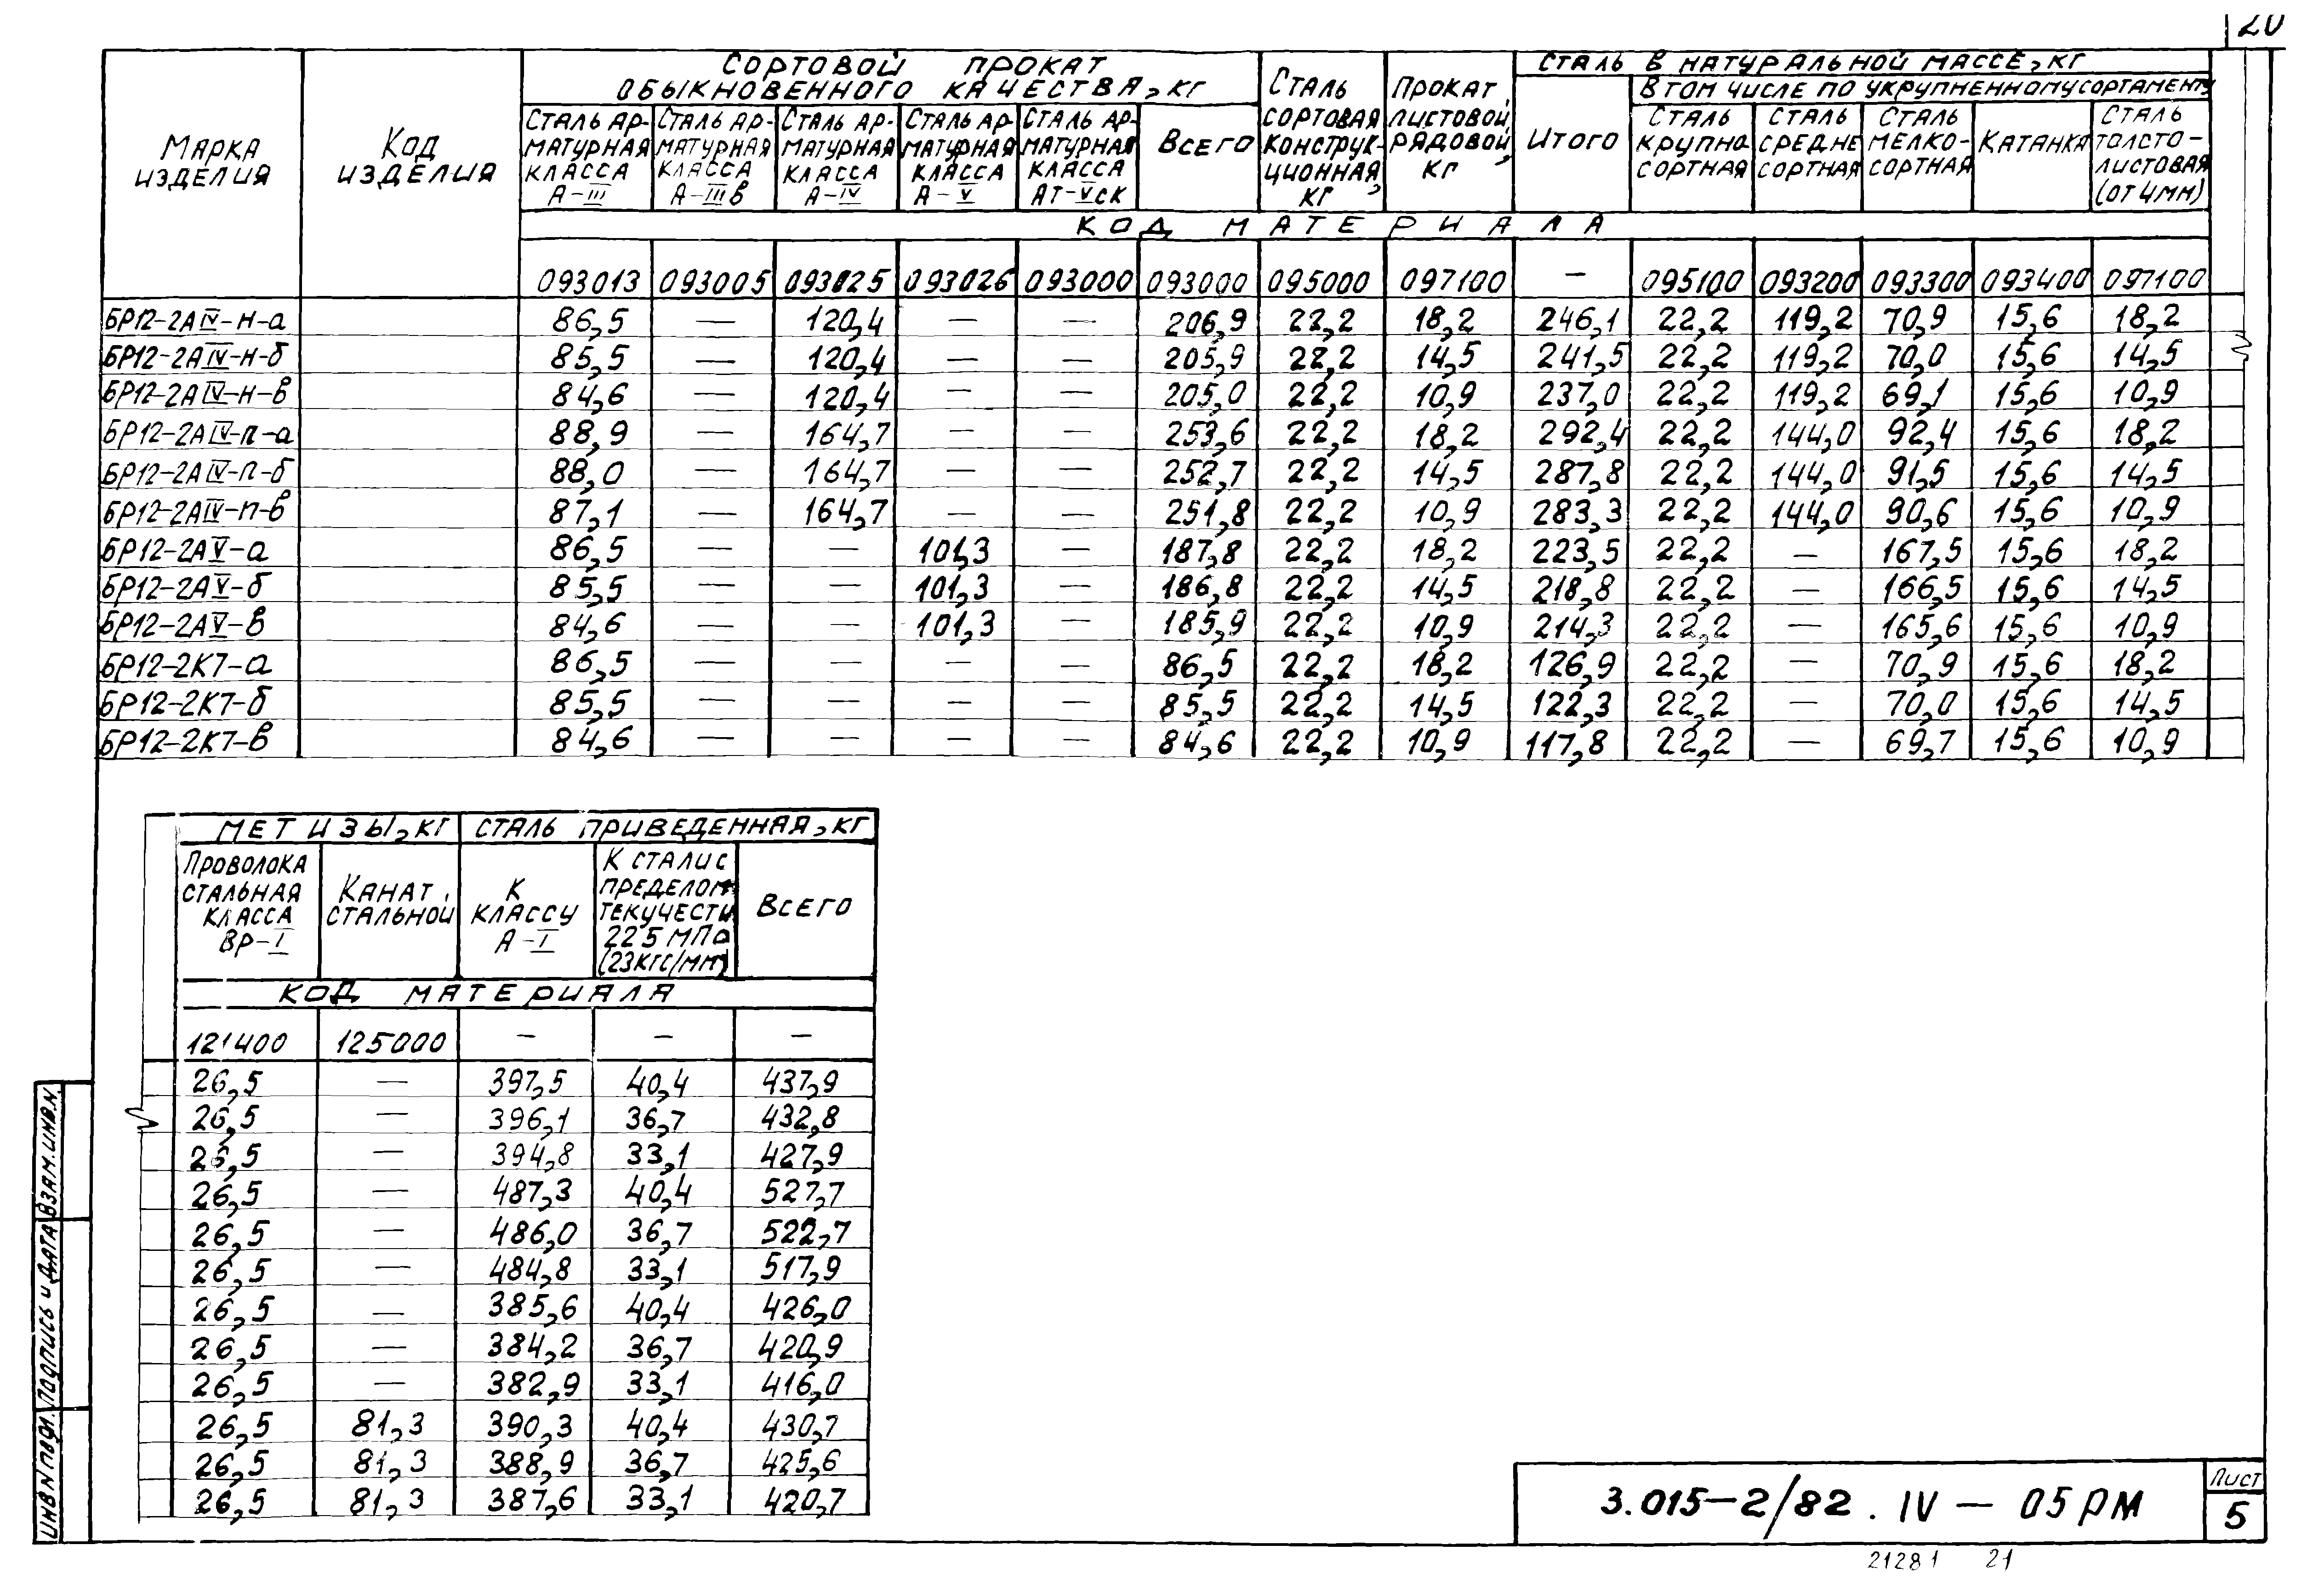 20
МАРКА ИЗДЕЛИЯ
КОД ИЗДЕЛИЯ
СОРТОВОЙ ПРОКАТ
ОБЫКНОВЕННОГО КАЧЕСТВА, КГ
СТАЛЬ СОРТОВАЯ КОНСТРУКЦИОННАЯ, КГ
ПРОКАТ ЛИСТОВОЙ РЯДОВОЙ, КГ
СТАЛЬ В НАТУРАЛЬНОЙ МАССЕ, КГ
В ТОМ ЧИСЛЕ ПО УКРУПНЕННОМУ СОРТАМЕНТУ
СТАЛЬ АРМАТУРНАЯ КЛАССА А-III
СТАЛЬ АРМАТУРНАЯ КЛАССА А-IIIВ
СТАЛЬ АРМАТУРНАЯ КЛАССА А-IV
СТАЛЬ АРМАТУРНАЯ КЛАССА А-V
СТАЛЬ АРМАТУРНАЯ КЛАССА АТ-VСК
ВСЕГО
ИТОГО
СТАЛЬ КРУПНОСОРТНАЯ
СТАЛЬ СРЕДНЕСОРТНАЯ
СТАЛЬ МЕЛКО-СОРТНАЯ
КАТАНКА
СТАЛЬ ТОЛСТО-ЛИСТОВАЯ (ОТ 4ММ)
КОД МАТЕРИАЛА
093013 093005 093025 093026 093000 093000 095000 097100 — 095100 093200 093300 093400 097100
БР12-2АIV-Н-а 86,5 — 120,4 — — 206,9 22,2 18,2 246,1 22,2 119,2 70,9 15,6 18,2
БР12-2АIV-Н-б 85,5 — 120,4 — — 205,9 22,2 14,5 241,5 22,2 119,2 70,0 15,6 14,5
БР12-2АIV-Н-в 84,6 — 120,4 — — 205,0 22,2 10,9 237,0 22,2 119,2 69,1 15,6 10,9
БР12-2АIV-П-а 88,9 — 164,7 — — 253,6 22,2 18,2 292,4 22,2 144,0 92,4 15,6 18,2
БР12-2АIV-П-б 88,0 — 164,7 — — 252,7 22,2 14,5 287,8 22,2 144,0 91,5 15,6 14,5
БР12-2АIV-П-в 87,1 — 164,7 — — 251,8 22,2 10,9 283,3 22,2 144,0 90,6 15,6 10,9
БР12-2АV-а 86,5 — — 101,3 — 187,8 22,2 18,2 223,5 22,2 — 167,5 15,6 18,2
БР12-2АV-б 85,5 — — 101,3 — 186,8 22,2 14,5 218,8 22,2 — 166,5 15,6 14,5
БР12-2АV-в 84,6 — — 101,3 — 185,9 22,2 10,9 214,3 22,2 — 165,6 15,6 10,9
БР12-2К7-а 86,5 — — — — 86,5 22,2 18,2 126,9 22,2 — 70,9 15,6 18,2
БР12-2К7-б 85,5 — — — — 85,5 22,2 14,5 122,3 22,2 — 70,0 15,6 14,5
БР12-2К7-в 84,6 — — — — 84,6 22,2 10,9 117,8 22,2 — 69,7 15,6 10,9
МЕТИЗЫ, КГ
СТАЛЬ ПРИВЕДЕННАЯ, КГ
ПРОВОЛОКА СТАЛЬНАЯ КЛАССА ВР-I
КАНАТ СТАЛЬНОЙ
К КЛАССУ А-I
К СТАЛИ С ПРЕДЕЛОМ ТЕКУЧЕСТИ 225 МПа (23КГС/ММ)
ВСЕГО
КОД МАТЕРИАЛА
121400 125000 — — —
26,5 — 397,5 40,4 437,9
26,5 — 396,1 36,7 432,8
26,5 — 394,8 33,1 427,9
26,5 — 487,3 40,4 527,7
26,5 — 486,0 36,7 522,7
26,5 — 484,8 33,1 517,9
26,5 — 385,6 40,4 426,0
26,5 — 384,2 36,7 420,9
26,5 — 382,9 33,1 416,0
26,5 81,3 390,3 40,4 430,7
26,5 81,3 388,9 36,7 425,6
26,5 81,3 387,6 33,1 420,7
ИНВ N ПОДЛ. ПОДПИСЬ И ДАТА ВЗАМ. ИНВ. N.
3.015-2/82.IV-05РМ
ЛИСТ
5
21281 21